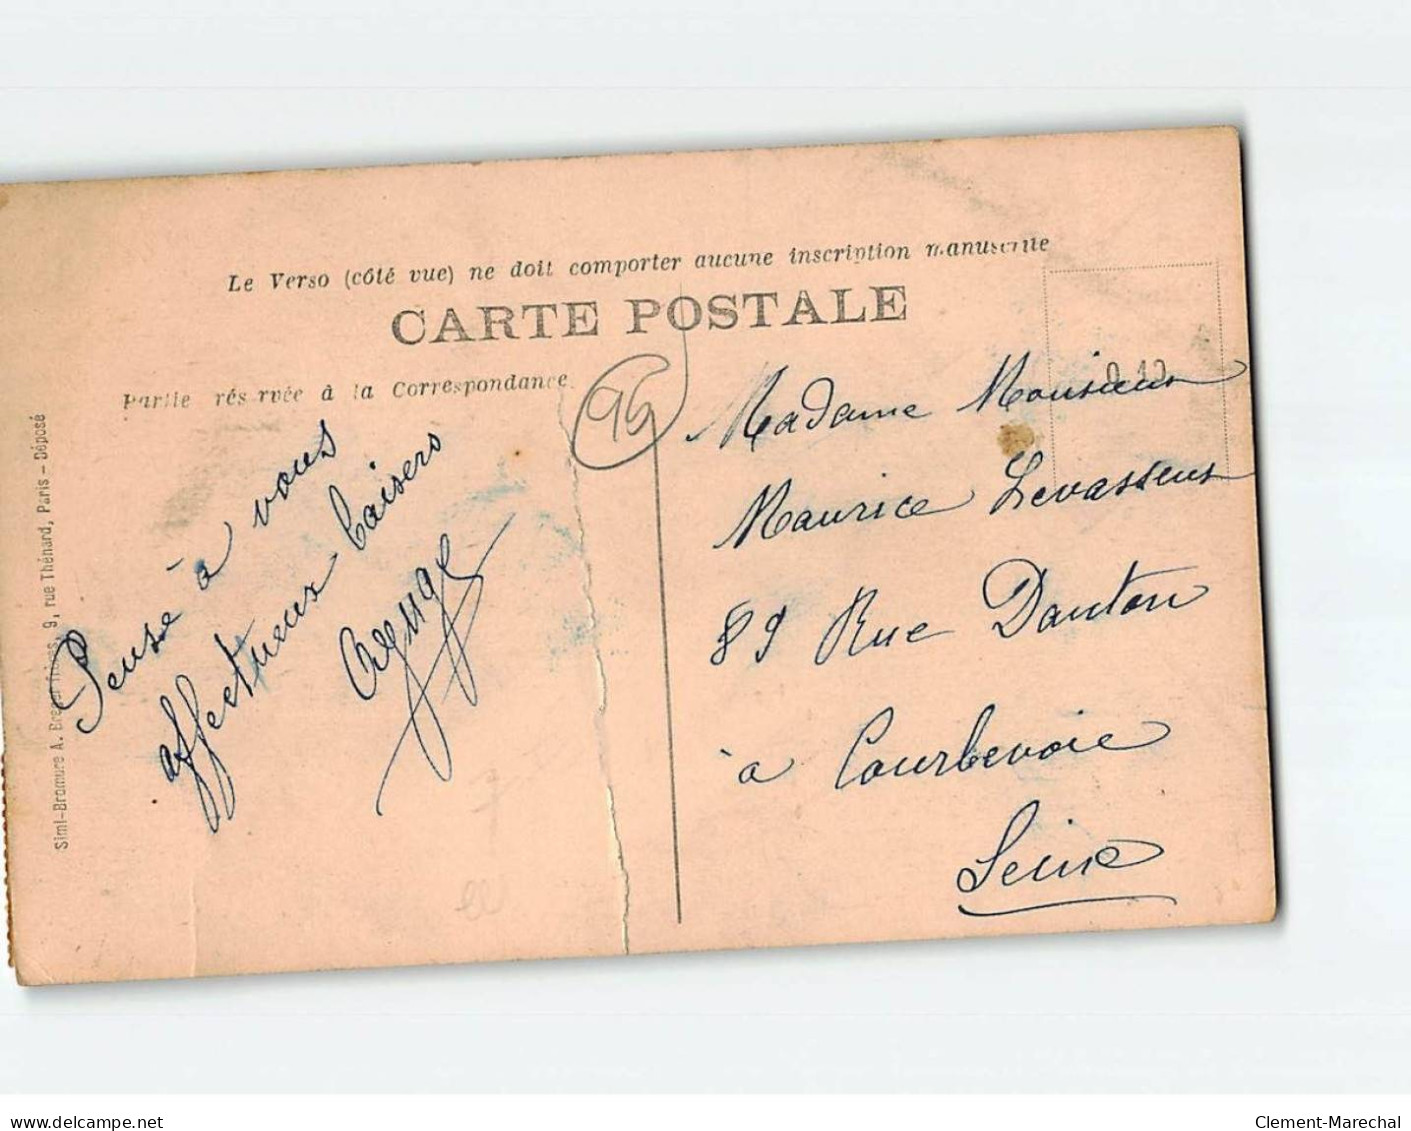 Le Verso (côté vue) ne doit comporter aucune inscription manuscrite
CARTE POSTALE
Partie réservée à la Correspondance
95
0 10
Pensé à vous
affectueux baisers
Madame Monsieur
Maurice Levasseur
89 Rue Danton
à Courbevoie
Seine
Simi-Bromure A. Breger frères, 9, rue Thénard, Paris - Déposé
delcampe.net
Clement-Marechal